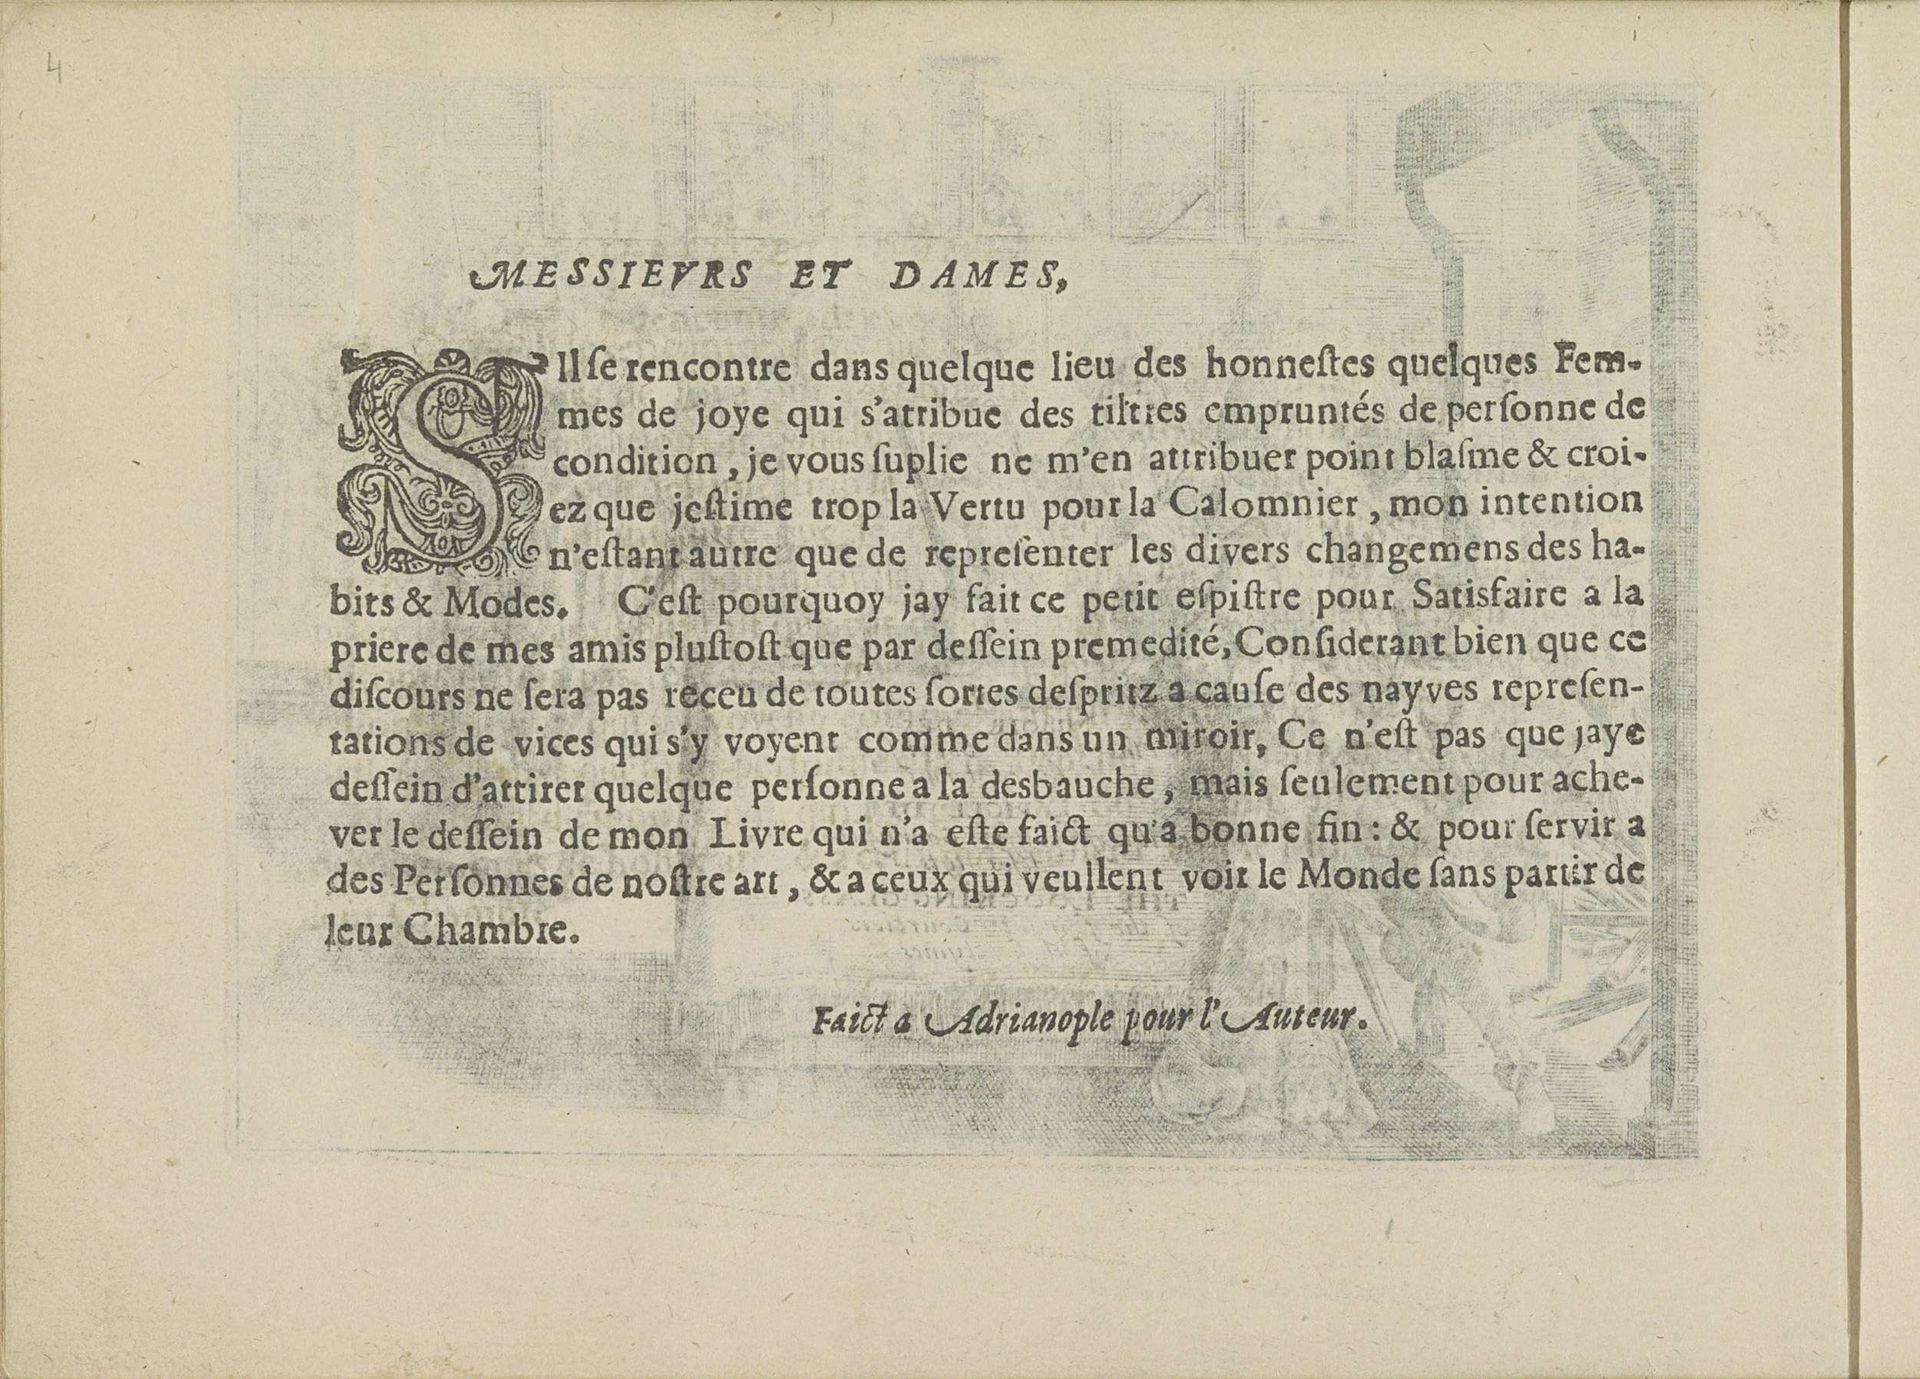 4
MESSIEVRS ET DAMES,
SIl ſe rencontre dans quelque lieu des honneſtes quelques Fem-
mes de joye qui s'atribue des tiltres empruntés de perſonne de
condition, je vous ſuplie ne m'en attribuer point blaſme & croi-
ez que jeſtime trop la Vertu pour la Calomnier, mon intention
n'eſtant autre que de repreſenter les divers changemens des ha-
bits & Modes. C'eſt pourquoy jay fait ce petit eſpiſtre pour Satisfaire a la
priere de mes amis pluſtoſt que par deſſein premedité, Conſiderant bien que ce
diſcours ne ſera pas receu de toutes ſortes deſpritz a cauſe des nayves repreſen-
tations de vices qui s'y voyent comme dans un miroir, Ce n'eſt pas que jaye
deſſein d'attirer quelque perſonne a la desbauche, mais ſeulement pour ache-
ver le deſſein de mon Livre qui n'a eſte faict qu'a bonne fin: & pour ſervir a
des Perſonnes de noſtre art, & a ceux qui veullent voir le Monde ſans partir de
leur Chambre.
Faict a Adrianople pour l'Auteur.